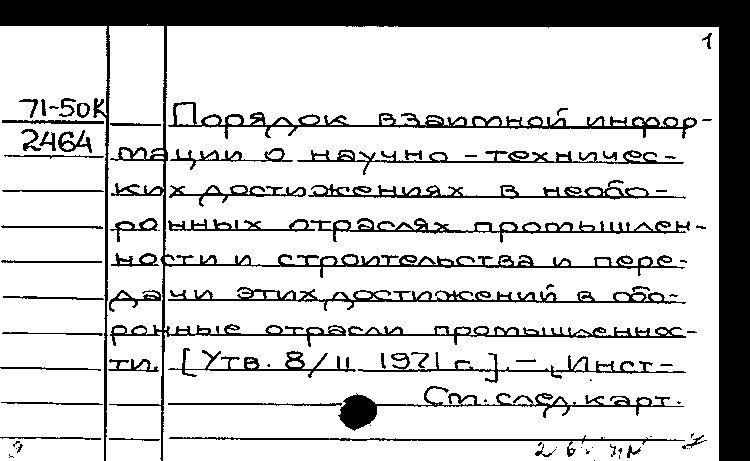 1
71-50К Порядок взаимной инфор-
2464 мации о научно-техничес-
ких достижениях в необо-
ронных отраслях промышлен-
ности и строительства и пере-
дачи этих достижений в обо-
ронные отрасли промышленнос-
ти. [Утв. 8/II 1971 г.]. — „Инст-
См. след. карт.
9